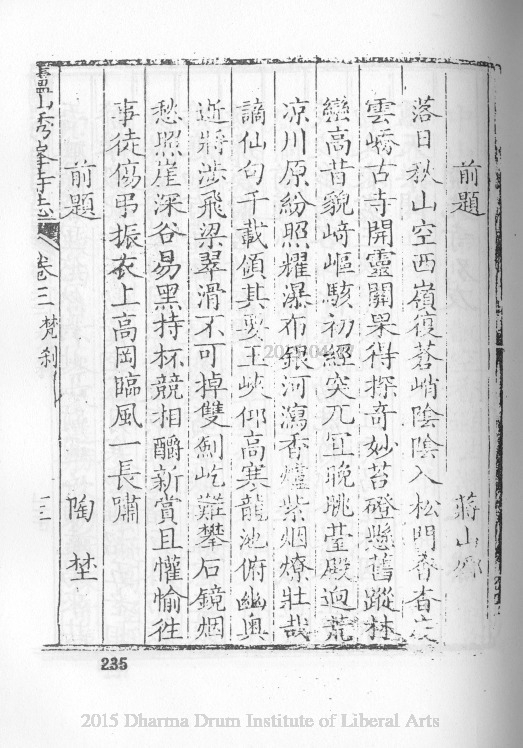 前題 蔣山卿
落日秋山空西嶺復蒼峭陰陰入松門杳杳度
雲嶠古寺開靈關果得探奇妙苔磴懸舊蹤林
巒高昔貌崎嶇駭初經突兀宜晚眺瑩殿迥荒
凉川原紛照耀瀑布銀河瀉香爐紫烟燎壯哉
謫仙句千載傾其要玉峽仰高寒龍池俯幽奥
逝將涉飛梁翠滑不可掉雙劍屹難攀石鏡烟
愁照崖深谷易黑持杯競相酹新賞且懽愉徃
事徒傷弔振衣上高岡臨風一長嘯
前題 陶埜
廬山秀峯寺志 卷三 梵刹 三
235
2015 Dharma Drum Institute of Liberal Arts